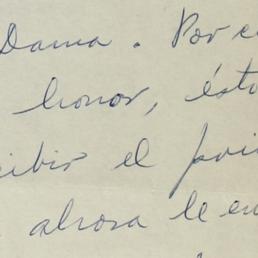 Dama. Por e
honor, ésto
cibir el
ahora le en